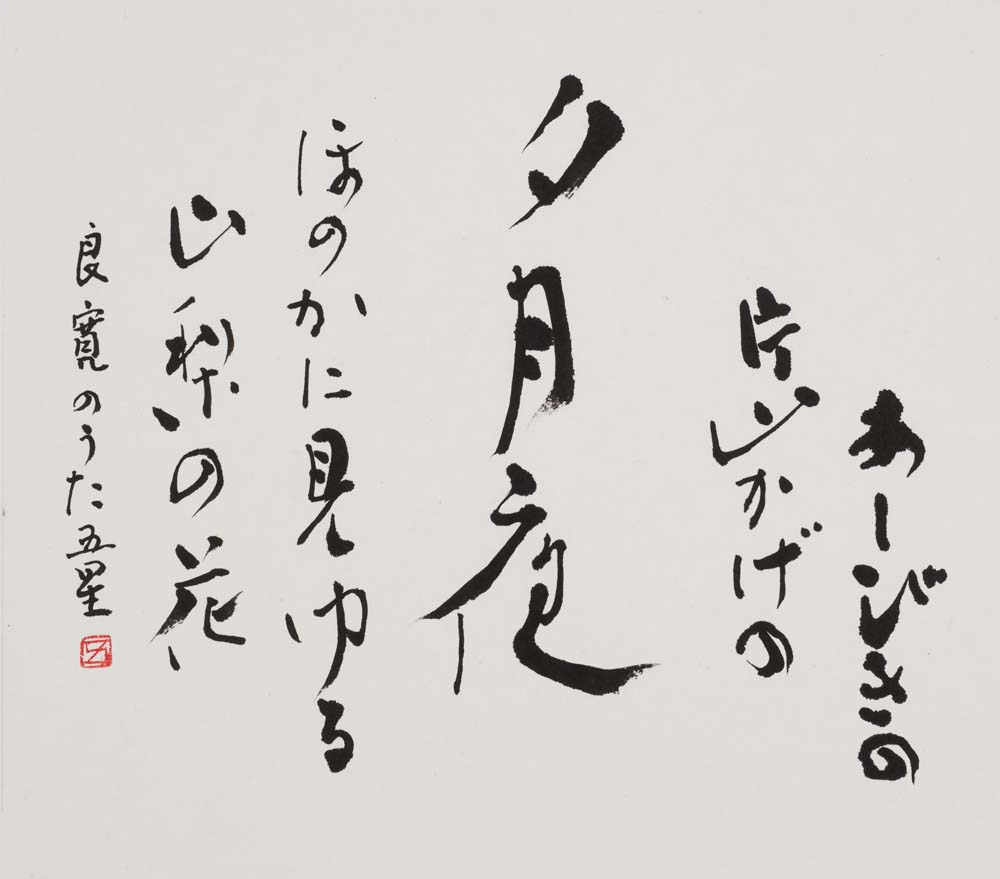 あしびきの
片山かげの
夕月夜
ほのかに見ゆる
山梨の花
良寛のうた 五星